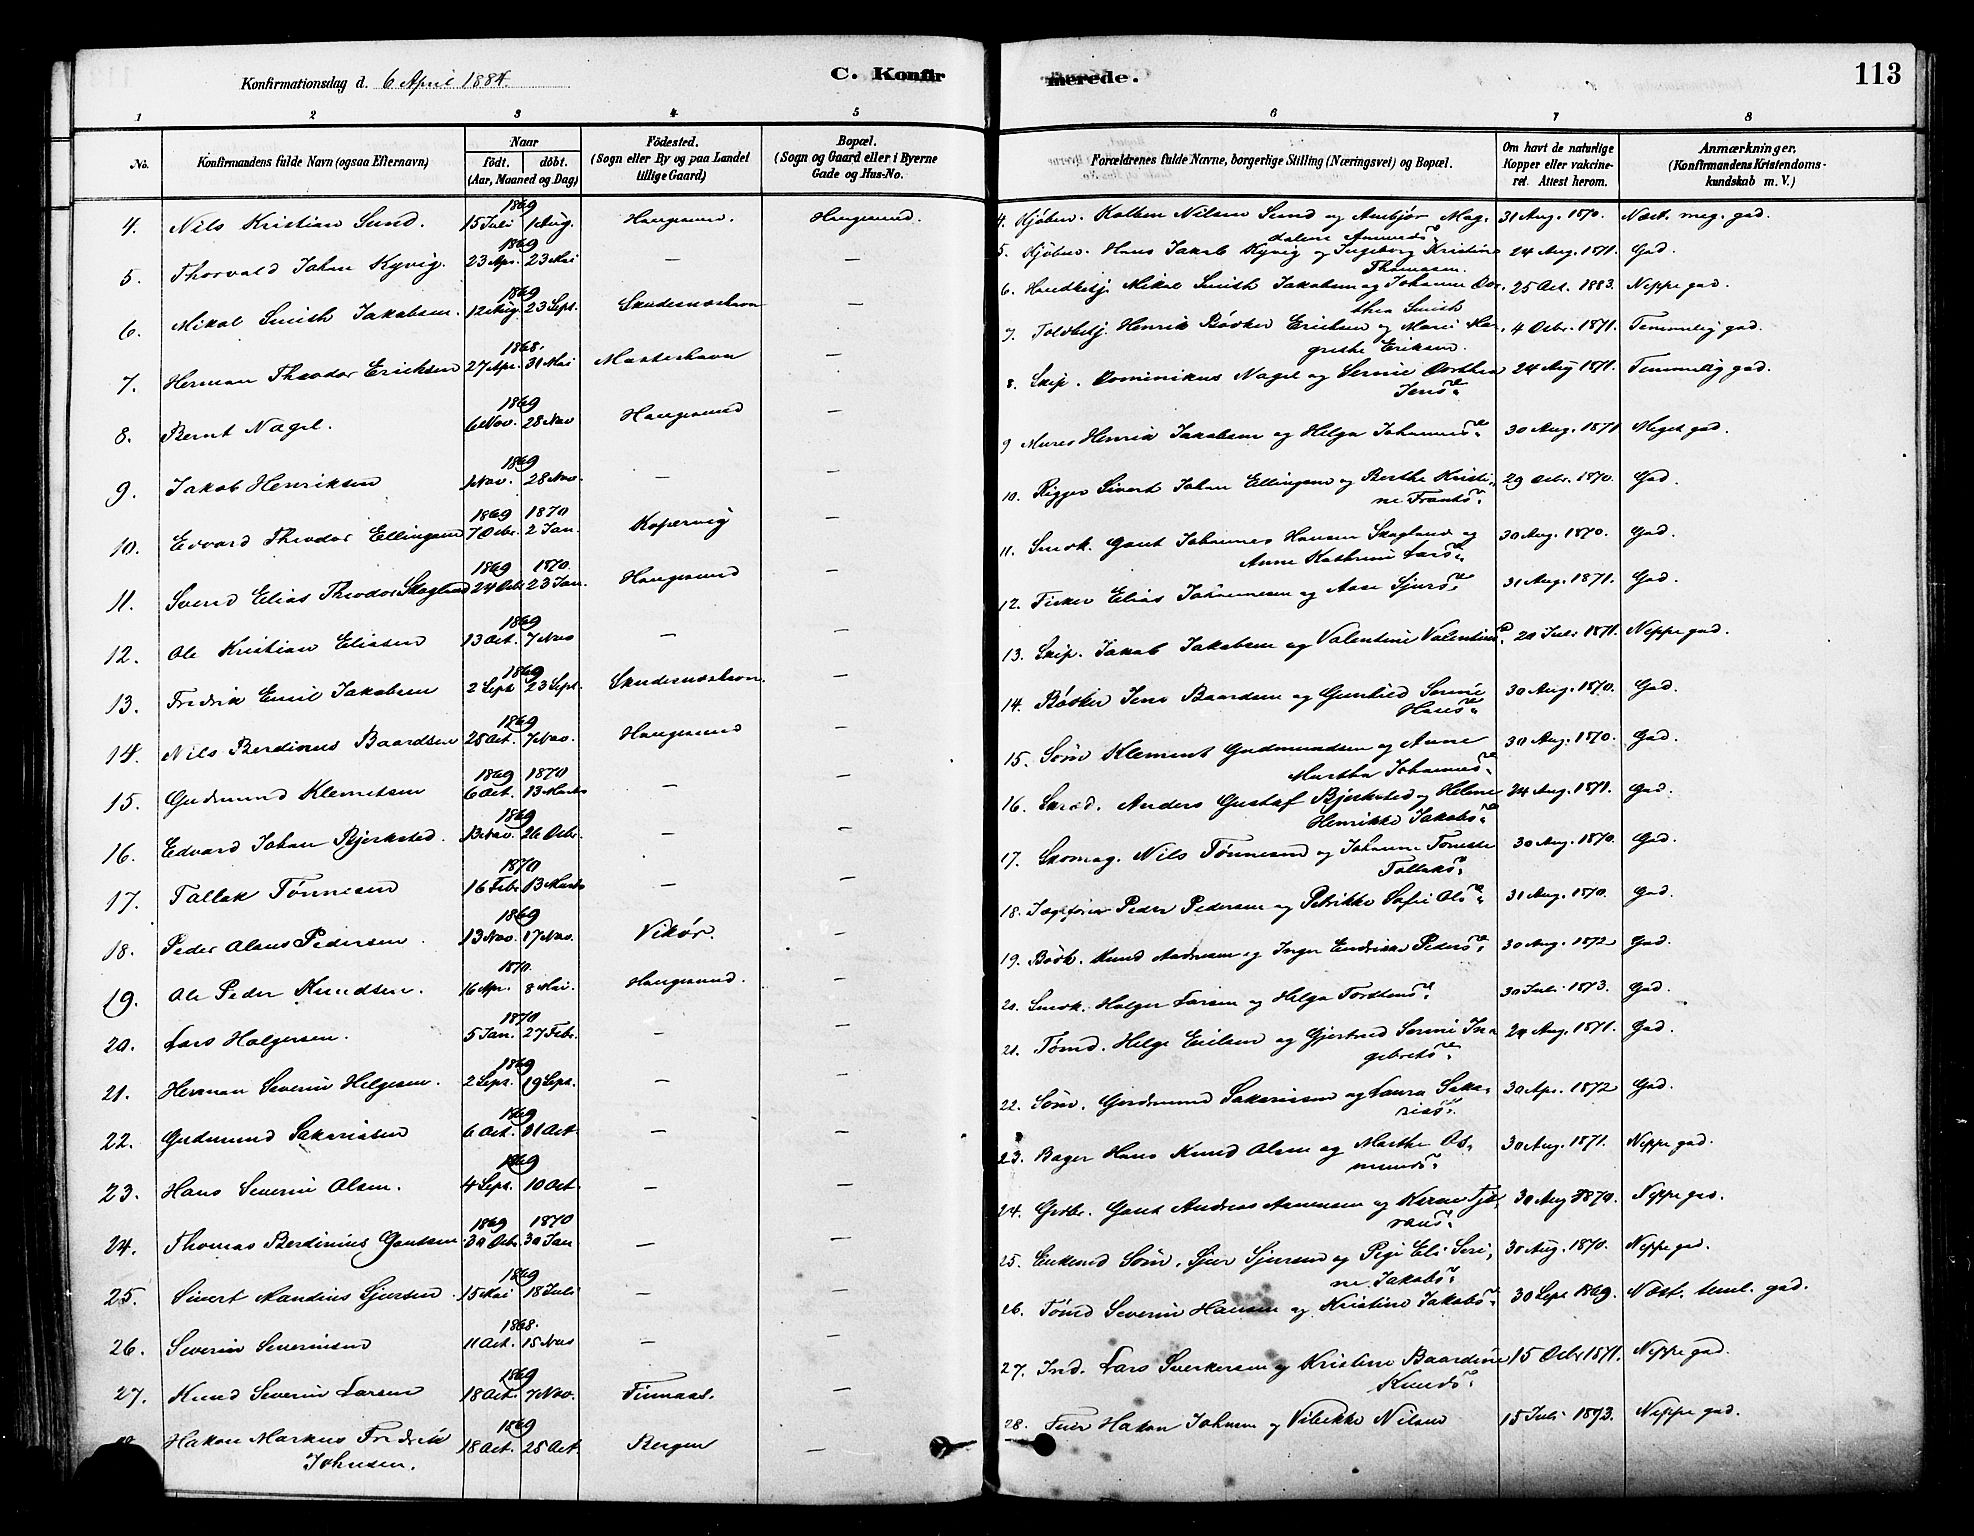 Konfirmationsdag d. 6 April 1884.
C. Konfirmerede.
113
1 2 3 4 5 6 7 8
No.
Konfirmandens fulde Navn (ogsaa Efternavn)
Naar
födt. döbt.
(Aar, Maaned og Dag)
Födested.
(Sogn eller By og paa Landet
tillige Gaard)
Bopæl.
(Sogn og Gaard eller i Byerne
Gade og Hus-No.
Forældrenes fulde Navne, borgerlige Stilling (Næringsvei) og Bopæl.
Om havt de naturlige
Kopper eller vakcine-
ret. Attest herom.
Anmærkninger,
(Konfirmandens Kristendoms-
kundskab m. V.)
1869
4. Nils Kristian Sund. 15 Juli 1 Aug. Haugesund. Haugesund.
1869
5. Thorvald Johan Kyvig. 23 Apr. 23 Mai — —
1869
6. Mikal Smith Jakobsen. 12 Aug 23 Sept. Skudesnæshavn —
1868.
7. Herman Theodor Ericksen 27 Apr. 31 Mai —
1869
8. Bernt Nagel. 6 Nov. 28 Nov Haugesund —
1869
9. Jakob Henriksen 1 Nov. 28 Nov. — —
1869 1870
10. Edvard Theodor Ellingsen 7 Decbr. 2 Jan. Kopervig —
1869 1870.
11. Svend Elias Theodor Skogland 24 Octr 23 Jan. Haugesund —
1869
12. Ole Kristian Eliasen 13 Oct. 7 Nov — —
1869
13. Fredrik Emil Jakobsen 2 Sept 23 Sept. Skudesnæshavn. —
1869
14. Nils Berdinus Baardsen 28 Oct. 7 Nov. Haugesund —
1869 1870
15. Gudmund Klemetsen 6 Oct. 13 Marts — —
1869
16. Edvard Johan Bjerksted. 13 Nov. 26 Decbr. — —
1870
17. Tallak Tönnesen 16 Febr 13 Marts — —
1869
18. Peder Olaus Pedersen. 13 Nov. 17 Nov. Vikör. —
1870.
19. Ole Peder Knudsen. 16 Apr. 8 Mai. Haugesund. —
1870
20. Lars Holgersen. 5 Jan. 27 Febr. — —
1869
21. Herman Severin Helgesen. 2 Sept. 19 Sept. — —
1869
22. Gudmund Sakariasen 6 Oct. 31 Oct. — —
1869
23. Hans Severin Olsen. 4 Sept. 10 Oct — —
1869 1870
24. Thomas Berdinius Gautsen 30 Octr 30 Jan — —
1869
25. Sivert Mandius Sjursen. 15 Mai 18 Juli — —
1868.
26. Severin Severinsen 11 Oct. 15 Nov — —
1869
27. Knud Severin Larsen 18 Oct. 7 Nov. Finnaas. —
1869
Hakon Markus Fredrik 18 Oct. 25 Oct. Bergen —
Johnsen.
4. Kjöbm. Nilsen Sund og Anbjör Mag- 31 Aug. 1870. Næst. meg. god.
dalene
5. Kjöbm. Hans Jakob Kyvig og Ingeborg Kristine 24 Aug. 1871. God.
Thomasen.
6. Mikal Smith Jakobsen og Johanne Dor- 25 Oct. 1883. Neppe god.
thea Smith
7. Henrik Bödker Ericksen og Maren Mar- 4 Decbr. 1871. Temmelig god.
grethe Eriksen.
8. Skip. Dominikus Nagel og Serine Dorthea 24 Aug 1871. Temmelig god.
Jensd.
9 Murer Henrik Jakobsen og Helga Johannesd. 30 Aug. 1871 Meget god.
10. Rigger Sivert Johan Ellingsen og Berthe Kristi- 29 Decbr. 1870. God.
ne Frantsd.
11. Snedk. Gaut Johannes Hansen Skogland og 30 Aug. 1870. God.
Anne Kathrine Larsd.
12. Fisker Elias Johannesen og Aase Sjursd. 31 Aug. 1871. God.
13. Skip. Jakob Jakobsen og Valentine Valentinsd. 20 Juli 1871. Neppe god.
14. Bödker Jens Baardsen og Gunhild Serine 30 Aug. 1870. God.
Hansd.
15. Söm. Klement Gudmundsen og Anne 30 Aug. 1870. God.
Martha Johannesd.
16. Skræd. Anders Gustaf Bjerksted og Helene 24 Aug. 1871. God.
Henrikke Jakobsd.
17. Skomag. Nils Tönnesen og Johanne 30 Aug. 1870. God.
Tollaksd.
18. Peder Pedersen og Petrikke Sofie Olsd. 31 Aug. 1870. God.
19. Bödk. Knud Andresen og Inger Endrikke Pedersd. 30 Aug. 1872 God.
20. Snedk. Holger Larsen og Helga Torstensd. 30 Juli 1873. God.
21. Tömd. Helge Eriksen og Gjertrud Serine In- 24 Aug. 1871. God.
gebretsd.
22. Söm. Gudmund Sakariasen og Laura Saka- 30 Apr. 1872 God.
riasd.
23. Bager Hans Knud Olsen og Marthe Os- 30 Aug. 1871. Neppe god.
mundsd.
24. Gaut Andreas og Karen 30 Aug 1870. Neppe god.
25. Enkemd Söm. Sjur Sjursen og Pige Eli Seri- 30 Aug. 1870. Neppe god.
ne Jakobsd.
26. Tömd Severin Hansen og Kristine Jakobsd. 30 Sept 1869. Næst. teml. god.
27. Ind. Lars Sverkersen og Kristine Baardine 15 Octbr 1871. Neppe god.
Knudsd.
28. Hakon Johnsen og Vibekke Nilsen 15 Juli 1873. Neppe god.